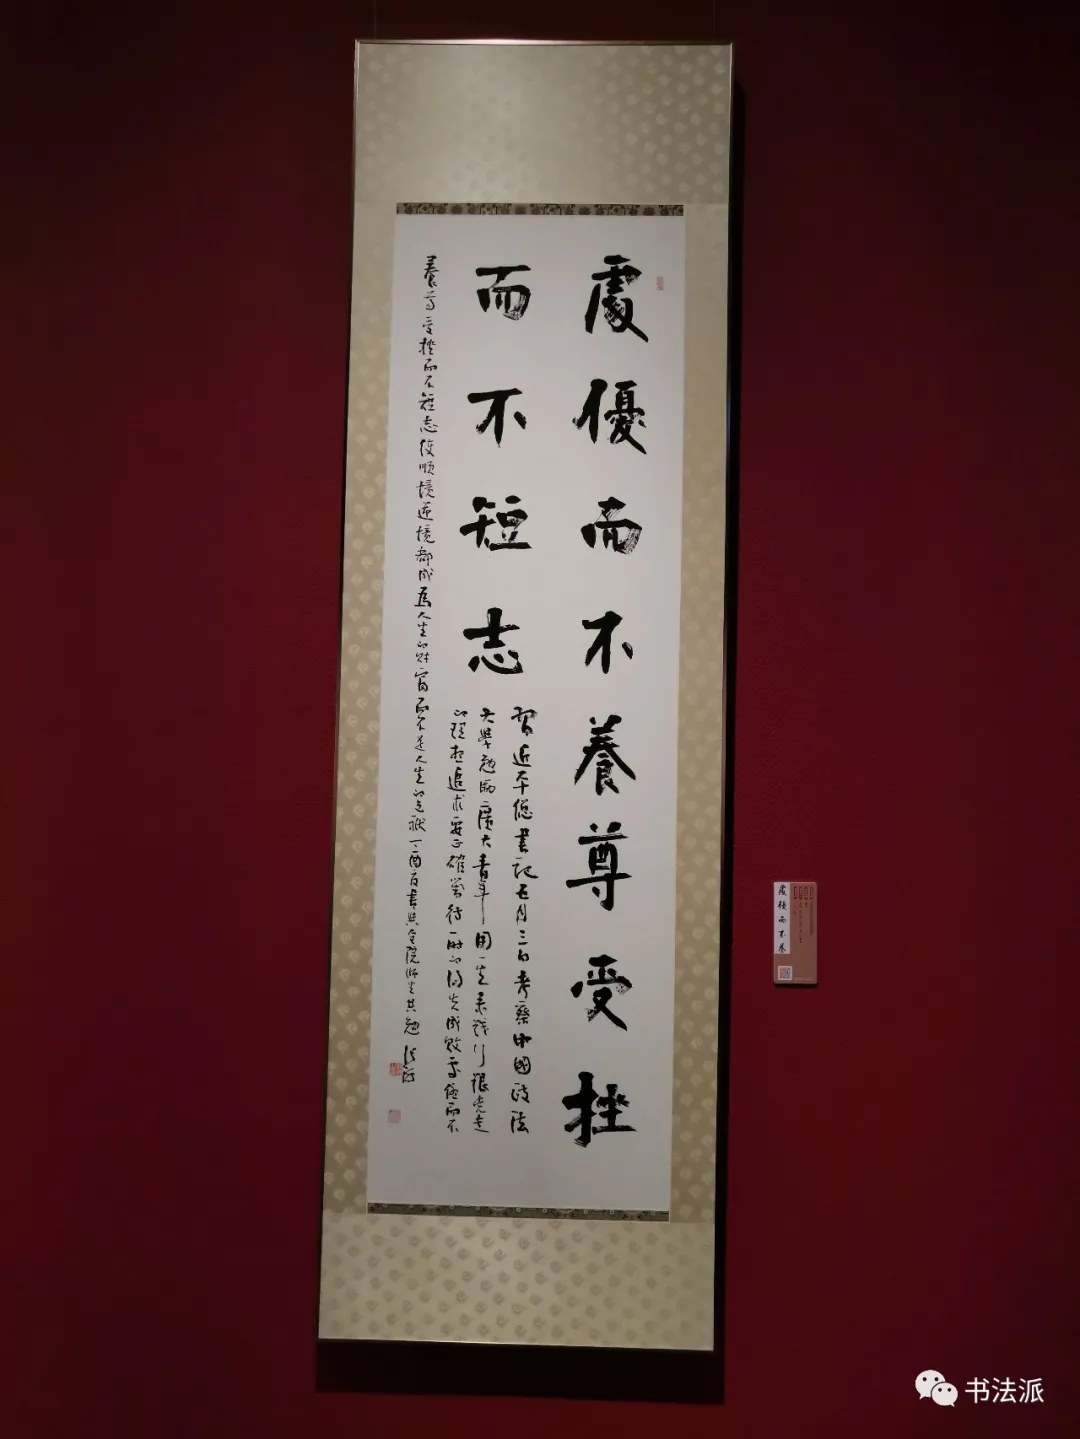 處優而不養尊受挫
而不短志
習近平總書記五月三日考察中國政法
大學勉勵廣大青年用一生來踐行跟黨走
的理想追求要正確對待一時的得失成敗處優而不
養尊受挫而不短志使順境逆境都成為人生的財富而不是人生的包袱丁酉夏書與全院師生共勉
處優而不養
书法派